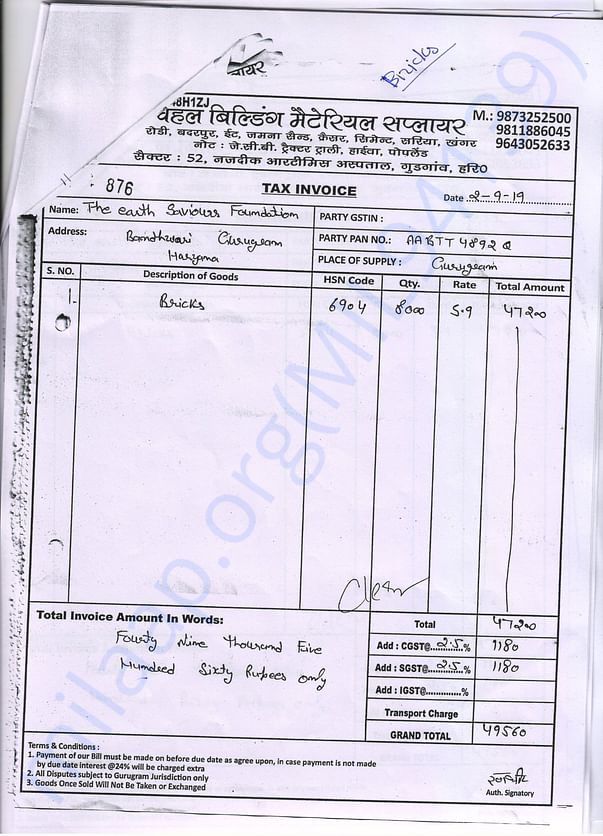 Bricks
लायर
H1ZJ
वहल बिल्डिंग मैटेरियल सप्लायर
M.: 9873252500
9811886045
9643052633
रोडी, बदरपुर, ईंट, जमना सैन्ड, कैसर, सिमेन्ट, सरिया, खंगर
नोट : जे.सी.बी. ट्रैक्टर ट्राली, हाईवा, पोपलैंड
सैक्टर : 52, नजदीक आरटीमिस अस्पताल, गुडगांव, हरि०
876
TAX INVOICE
Date 2-9-19
Name: The earth Saviours Foundation
PARTY GSTIN :
Address: Bandhwari Gurugram
Haryana
PARTY PAN NO.: AABTT4892Q
PLACE OF SUPPLY : Gurugram
S. NO. Description of Goods HSN Code Qty. Rate Total Amount
1- Bricks 6904 8000 5.9 47200
Clear
Total Invoice Amount In Words:
Fourty Nine Thousand Five
Hundred Sixty Rupees only
Total 47200
Add : CGST@ 2.5% 1180
Add : SGST@ 2.5% 1180
Add : IGST@.............%
Transport Charge
GRAND TOTAL 49560
Terms & Conditions :
1. Payment of our Bill must be made on before due date as agree upon, in case payment is not made
by due date interest @24% will be charged extra
2. All Disputes subject to Gurugram Jurisdiction only
3. Goods Once Sold Will Not be Taken or Exchanged
Auth. Signatory